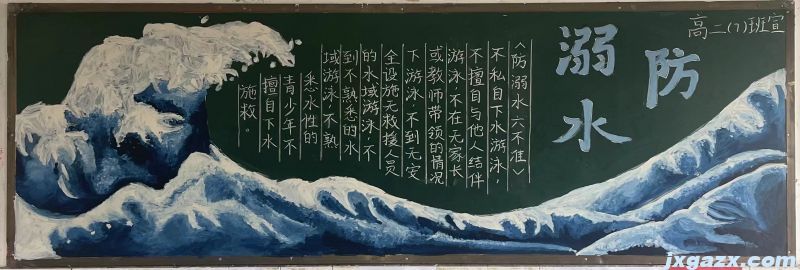 高二(7)班宣
防溺水
《防溺水六不准》
不私自下水游泳，
不擅自与他人结伴
游泳，不在无家长
或教师带领的情况
下游泳，不到无安
全设施无救援人员
的水域游泳，不
到不熟悉的水
域游泳，不熟
悉水性的
青少年不
擅自下水
施救。
jxgazx.com